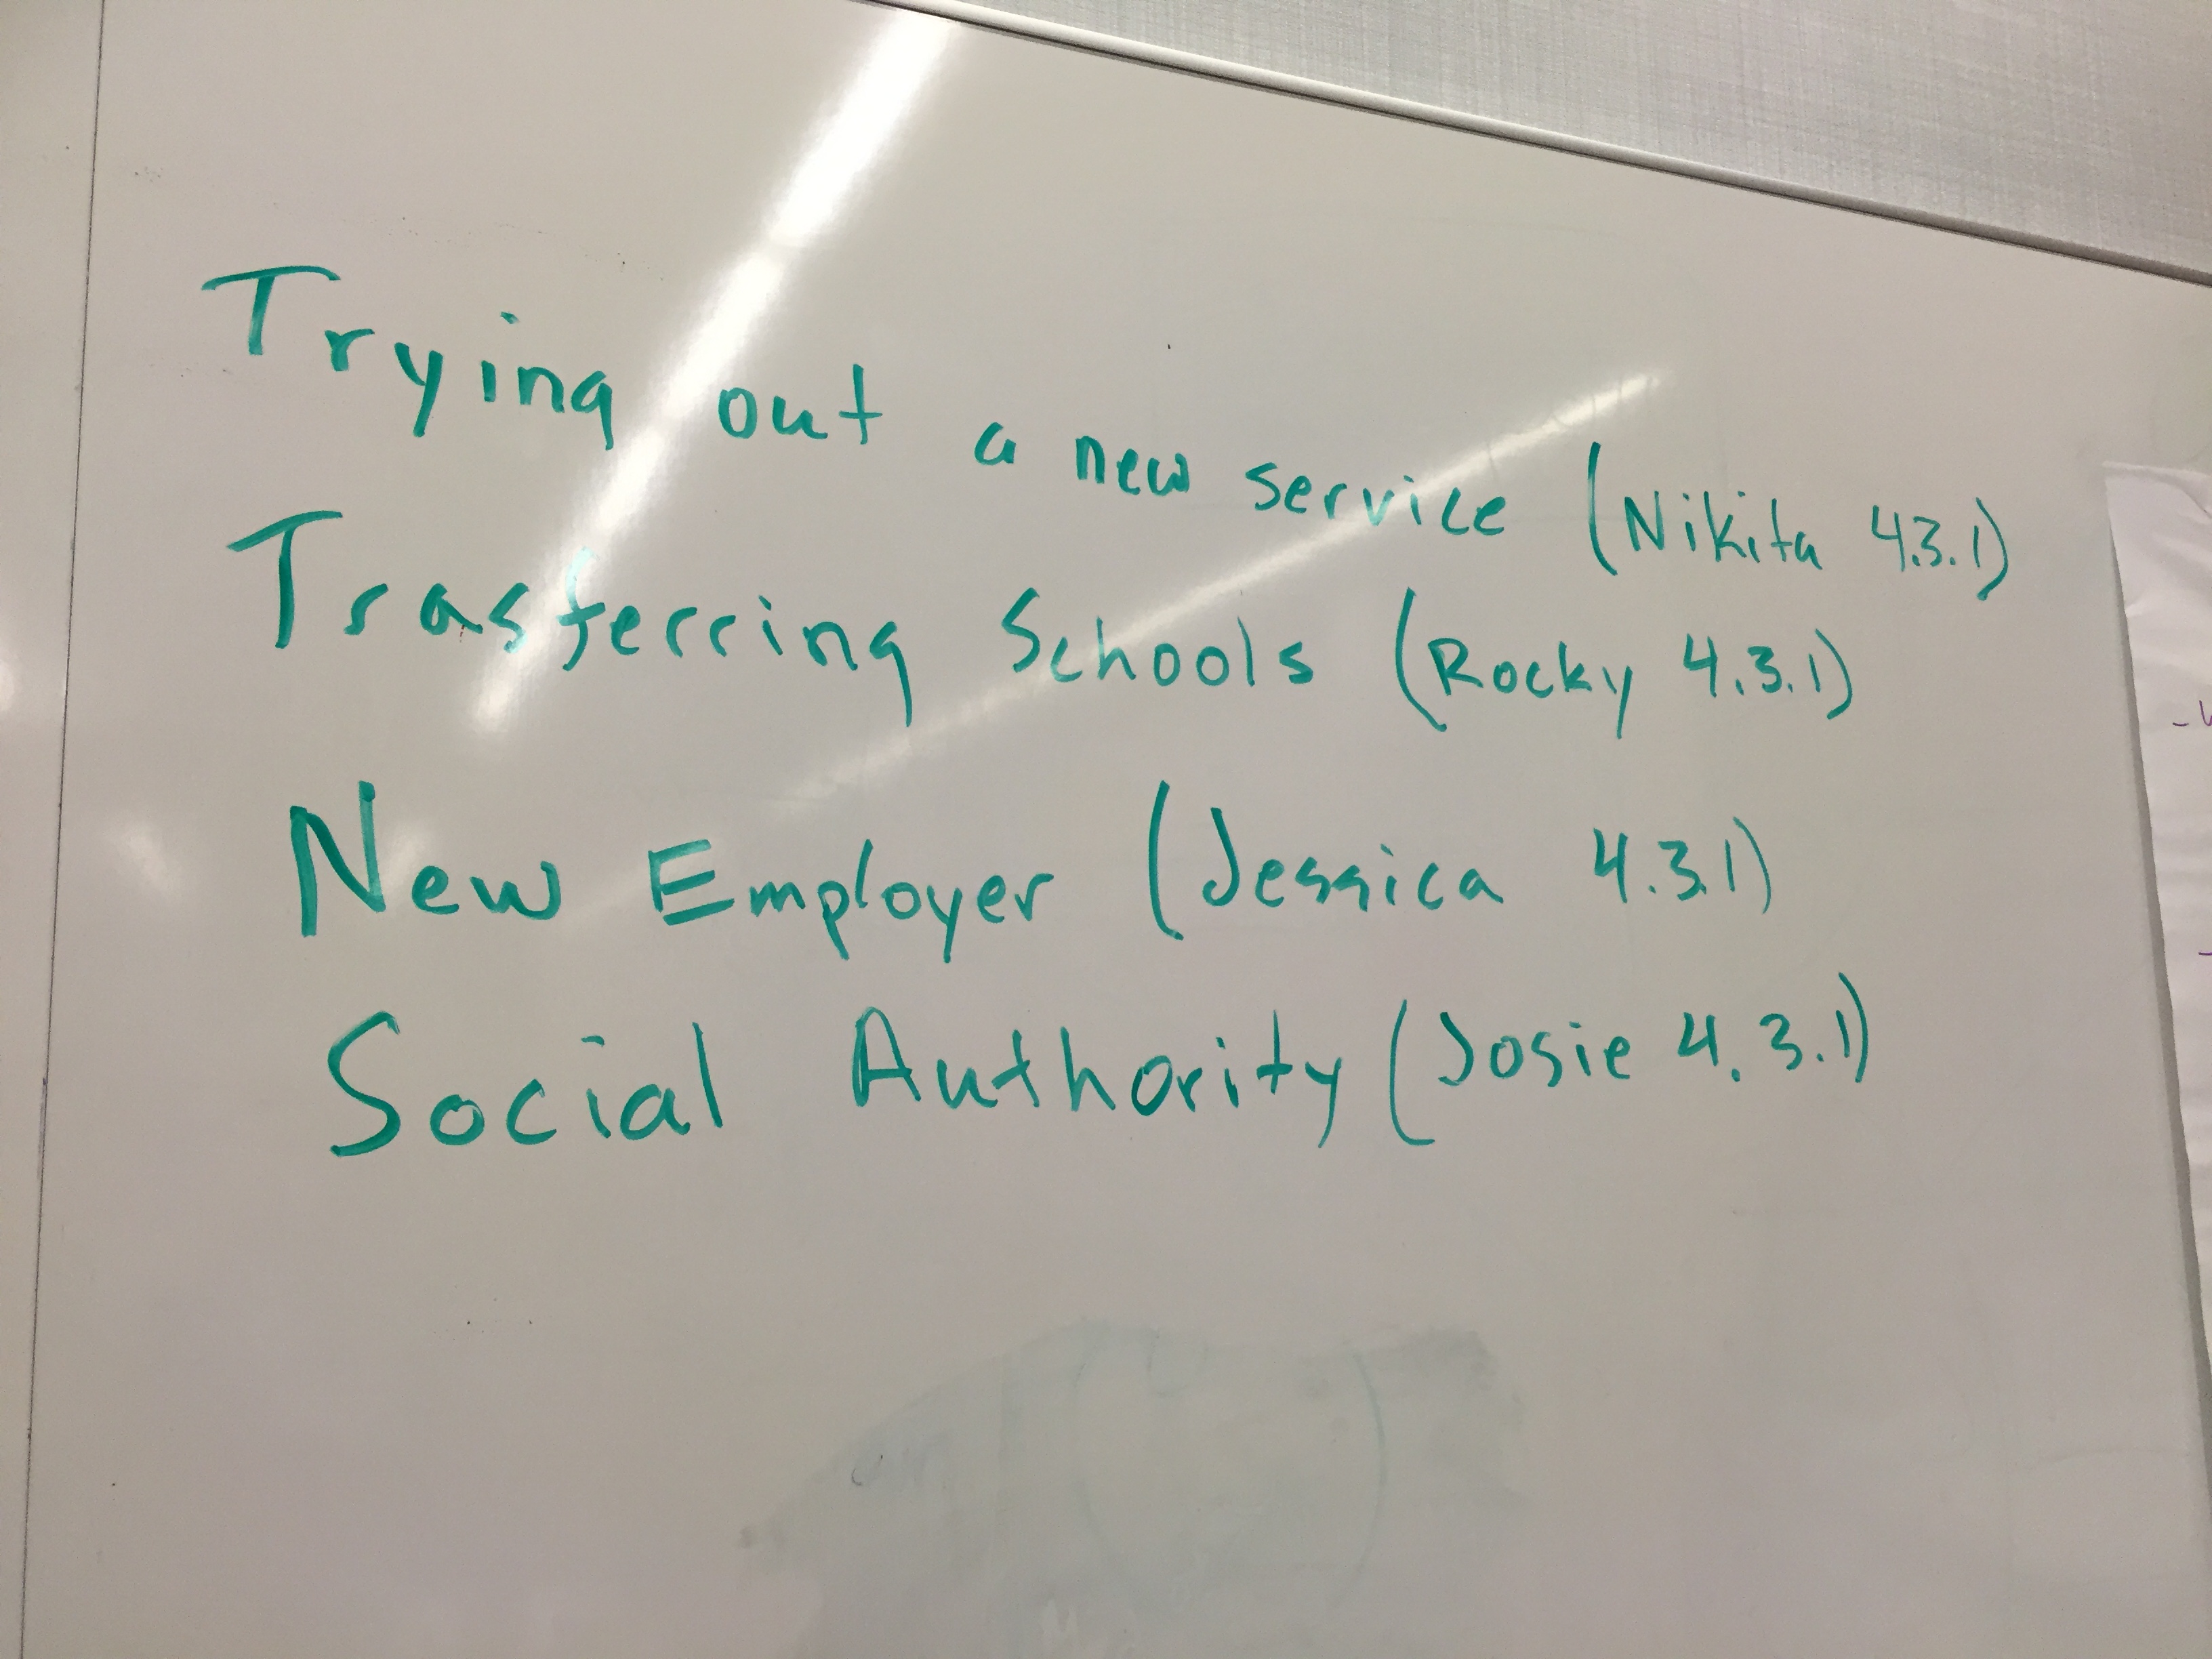 Trying out a new service (Nikita 4.3.1)
Trasferring Schools (Rocky 4.3.1)
New Employer (Jessica 4.3.1)
Social Authority (Josie 4.3.1)